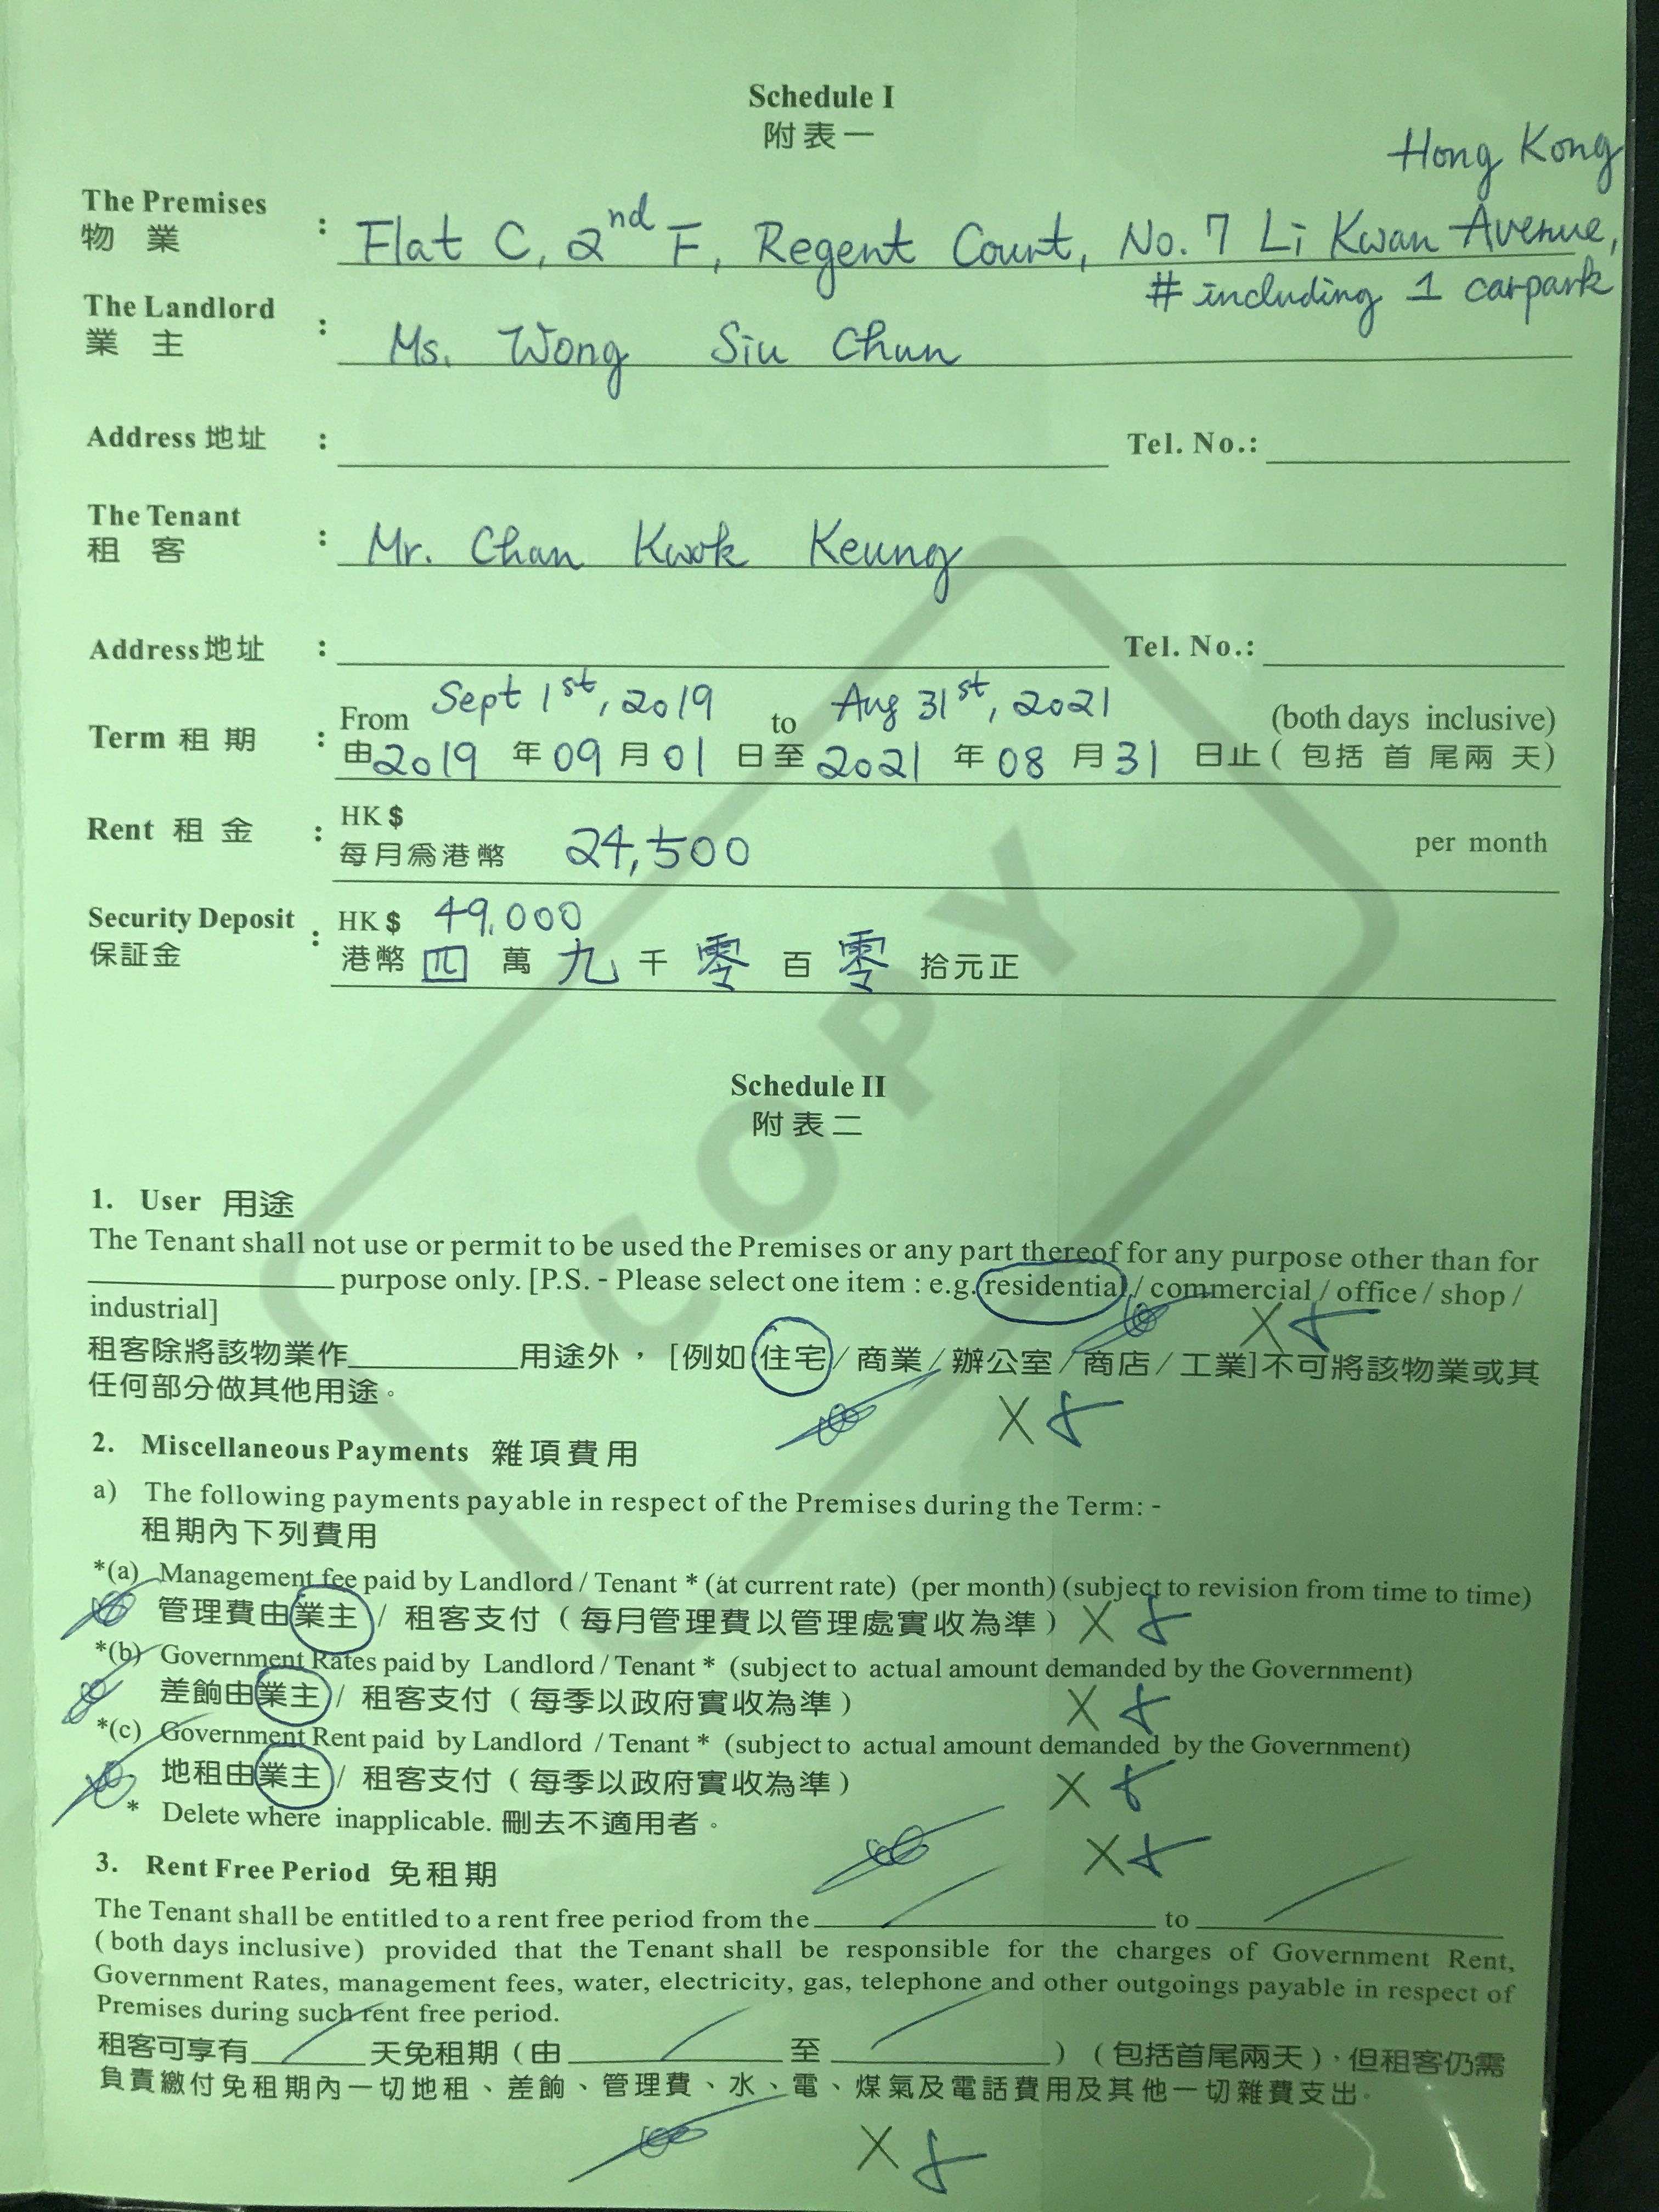 Schedule I
附表一
Hong Kong
The Premises
物 業 : Flat C, 2nd F, Regent Court, No. 7 Li Kwan Avenue,
# including 1 carpark
The Landlord
業 主 : Ms. Wong Siu Chun
Address 地址 : Tel. No.:
The Tenant
租 客 : Mr. Chan Kwok Keung
Address 地址 : Tel. No.:
Term 租 期 : From Sept 1st, 2019 to Aug 31st, 2021 (both days inclusive)
由2019 年 09 月 01 日至 2021 年 08 月 31 日止 ( 包括 首 尾兩 天)
Rent 租 金 : HK $
每月爲港幣 24,500 per month
Security Deposit : HK $ 49,000
保証金 港幣 四 萬 九 千 零 百 零 拾元正
COPY
Schedule II
附表二
1. User 用途
The Tenant shall not use or permit to be used the Premises or any part thereof for any purpose other than for
____ purpose only. [P.S. - Please select one item : e.g. residential / commercial / office / shop /
industrial]
租客除將該物業作____用途外， [例如 住宅 / 商業 / 辦公室 / 商店 / 工業]不可將該物業或其
任何部分做其他用途。
2. Miscellaneous Payments 雜項費用
a) The following payments payable in respect of the Premises during the Term: -
租期內下列費用
*(a) Management fee paid by Landlord / Tenant * (at current rate) (per month) (subject to revision from time to time)
管理費由業主 / 租客支付 ( 每月管理費以管理處實收為準 ) X
*(b) Government Rates paid by Landlord / Tenant * (subject to actual amount demanded by the Government)
差餉由業主 / 租客支付 ( 每季以政府實收為準 ) X
*(c) Government Rent paid by Landlord / Tenant * (subject to actual amount demanded by the Government)
地租由業主 / 租客支付 ( 每季以政府實收為準 ) X
* Delete where inapplicable. 刪去不適用者。
3. Rent Free Period 免租期
The Tenant shall be entitled to a rent free period from the ____ to ____
( both days inclusive) provided that the Tenant shall be responsible for the charges of Government Rent,
Government Rates, management fees, water, electricity, gas, telephone and other outgoings payable in respect of
Premises during such rent free period.
租客可享有____天免租期 ( 由____至____ ) ( 包括首尾兩天 )，但租客仍需
負責繳付免租期內一切地租、差餉、管理費、水、電、煤氣及電話費用及其他一切雜費支出。